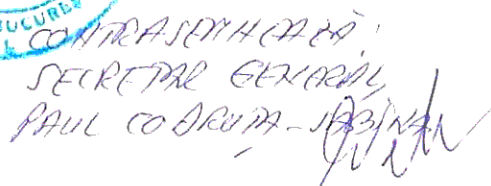 UCUREȘ
CONTRASEMNEAZĂ:
SECRETAR GENERAL,
PAUL CODRUȚA-SABINA